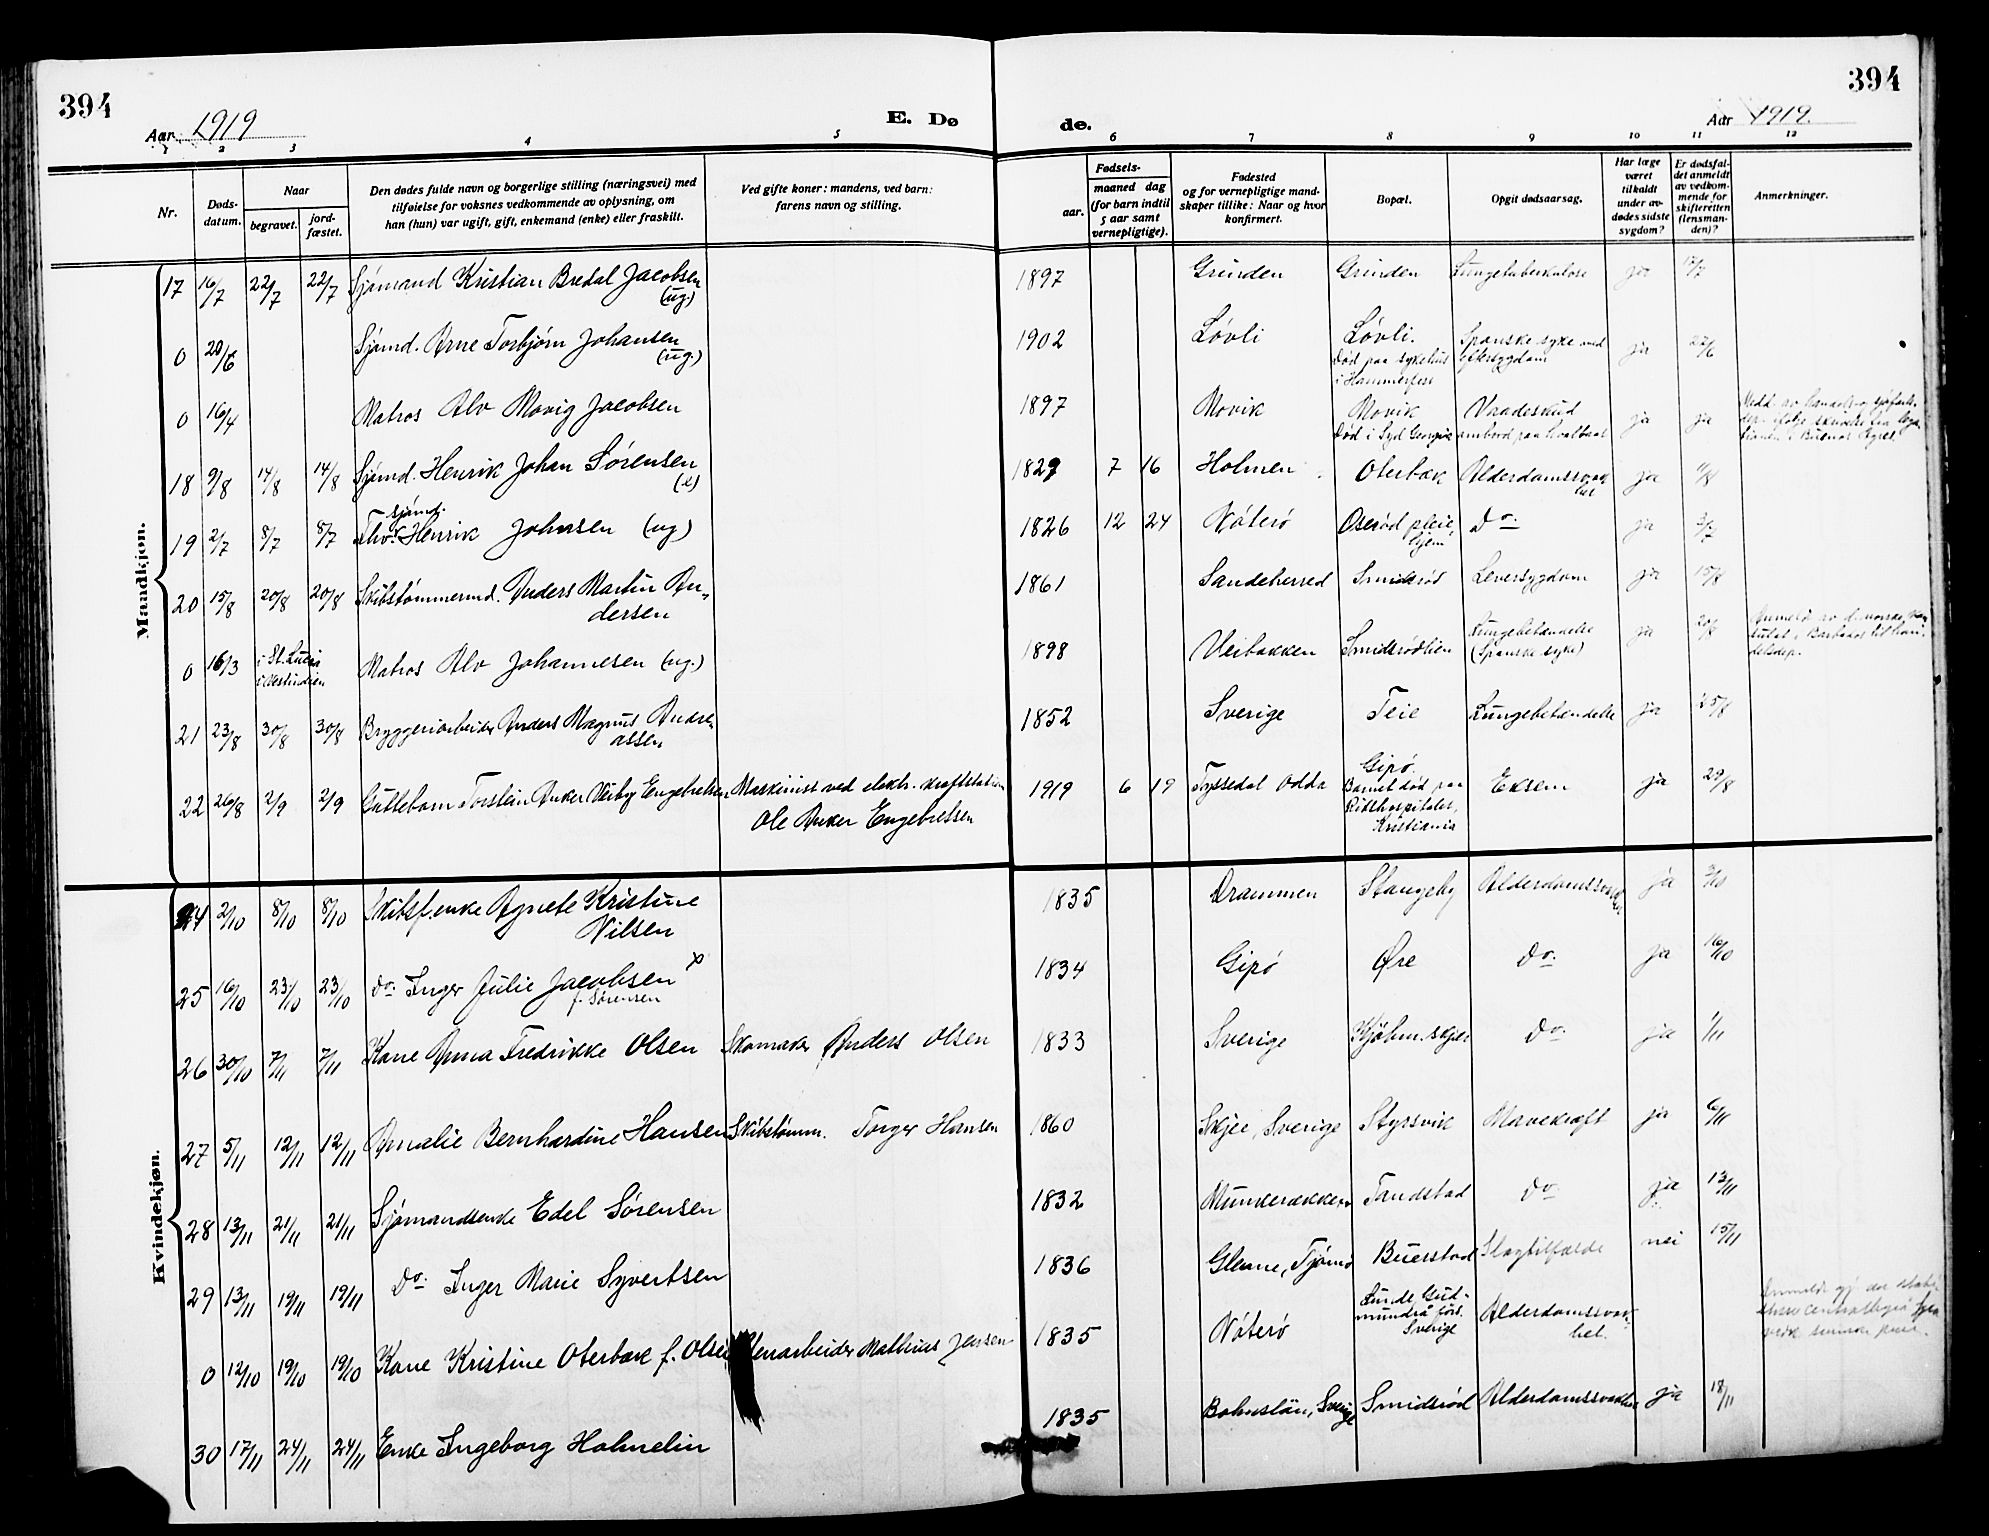 394
Aar 1919
E. Dø
de.
Aar 1919.
394
1 2 3 4 5 6 7 8 9 10 11 12
Nr.
Døds-
datum.
Naar
begravet.
jord-
fæstet.
Den dødes fulde navn og borgerlige stilling (næringsvei) med
tilføielse for voksnes vedkommende av oplysning, om
han (hun) var ugift, gift, enkemand (enke) eller fraskilt.
Ved gifte koner: mandens, ved barn:
farens navn og stilling.
Fødsels-
aar.
maaned dag
(for barn indtil
5 aar samt
vernepligtige).
Fødested
og for vernepligtige mand-
skaper tillike: Naar og hvor
konfirmert.
Bopæl.
Opgit dødsaarsag.
Har læge
været
tilkaldt
under av-
dødes sidste
sygdom?
Er dødsfal-
det anmeldt
av vedkom-
mende for
skifteretten
(lensman-
den)?
Anmerkninger.
Mandkjøn.
17 16/7 22/7 22/7 Sjømand Kristian Bredal Jacobsen 1897 Grinden Grinden Lungetuberkulose ja 17/7
(ug.)
0 20/6 Sjømd. Arne Torbjørn Johansen 1902 Løvli Løvli. Spanske syke med ja 27/6
(ug.) Død paa sykehus eftersygdom
i Hammerfest
0 16/4 Matros Alv Movig Jacobsen 1897 Movik Movik Vaadeskud ja ja
Død i Syd Georgia ombord paa hvalbaat
i Buenos Ayres.
18 9/8 14/8 14/8 Sjømd. Henrik Johan Sørensen 1829 7 16 Holmen Oterbæk Alderdomssvak ja 11/8
(e) het
sjømd.
19 2/7 8/7 8/7 Thv. Henrik Johnsen (ug) 1826 12 24 Nøterø Oserød pleie Do. ja 3/7
hjem
20 15/8 20/8 20/8 Skibstømmermd. Anders Martin An- 1861 Sandeherred Smidsrød Leversygdom ja 15/8
dersen
0 16/3 i St. Lucia Matros Alv Johannesen (ug.) 1898 Veibakken Smidsrødlien Lungebetændelse ja
i Vestindien (Spanske syke)
21 23/8 30/8 30/8 Bryggeriarbeider Anders Magnus Andre- 1852 Sverige Teie Lungebetændelse ja 25/8
assen
22 26/8 2/9 2/9 Guttebarn Torstein Anker Veiby Engebretsen Maskinist ved elektr. kraftstation 1919 6 19 Tyssedal Odda Gipø. Eksem ja 29/8
Ole Anker Engebretsen Barnet død paa
Rikshospitalet,
Kristiania
Kvindekjøn.
24 2/10 8/10 8/10 Skibsf.enke Agnete Kristine 1835 Drammen Stangeby Alderdomssvakhet ja 3/10
Nilsen
25 16/10 23/10 23/10 Do. Inger Julie Jacobsen x 1834 Gipø Øre Do. ja 16/10
f. Sørensen
26 30/10 7/11 7/11 Kone Anna Fredrikke Olsen Skomaker Anders Olsen 1833 Sverige Kjøbm.skjær Do. ja 1/11
27 5/11 12/11 12/11 Amalie Bernhardine Hansen Skibstømm. Torger Hansen 1860 Skjee, Sverige Styrsvik Mavekræft ja 6/11
28 13/11 21/11 21/11 Sjømandsenke Edel Sørensen 1832 Munkerækken Tandstad Do. ja 13/11
29 13/11 19/11 19/11 Do. Inger Marie Syvertsen 1836 Glenne, Tjømø Buerstad Slagtilfælde nei 15/11
0 12/10 19/10 19/10 Kone Kristine Oterbæk f. Olsen Stenarbeider Mathius Jensen 1835 Nøterø Lunde Gud- Alderdomssvak-
mundrå förs. het.
Sverige
30 17/11 24/11 24/11 Enke Ingeborg Holmelin 1835 Bohuslän, Sverige Smidsrød Alderdomssvakhet ja 18/11